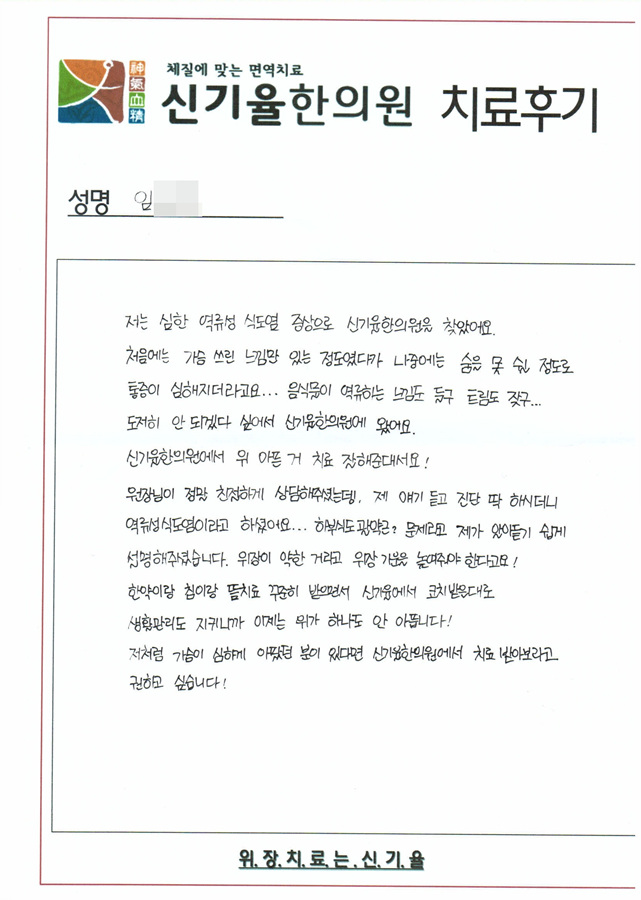 神氣血精
체질에 맞는 면역치료
신기율한의원 치료후기
성명 임
저는 심한 역류성 식도염 증상으로 신기율한의원을 찾았어요.
처음에는 가슴 쓰린 느낌만 있는 정도였다가 나중에는 숨을 못 쉴 정도로
통증이 심해지더라고요... 음식물이 역류하는 느낌도 들구 트림도 잦구...
도저히 안 되겠다 싶어서 신기율한의원에 왔어요.
신기율한의원에서 위 아픈 거 치료 잘해준대서요!
원장님이 정말 친절하게 상담해주셨는데, 제 얘기 듣고 진단 딱 하시더니
역류성식도염이라고 하셨어요... 하부식도괄약근? 문제라고 제가 알아듣기 쉽게
설명해주셨습니다. 위장이 약한 거라고 위장 기운을 높여줘야 한다고요!
한약이랑 침이랑 뜸치료 꾸준히 받으면서 신기율에서 코치받은대로
생활관리도 지키니까 이제는 위가 하나도 안 아픕니다!
저처럼 가슴이 심하게 아팠던 분이 있다면 신기율한의원에서 치료 받아보라고
권하고 싶습니다!
위.장.치.료.는.신.기.율